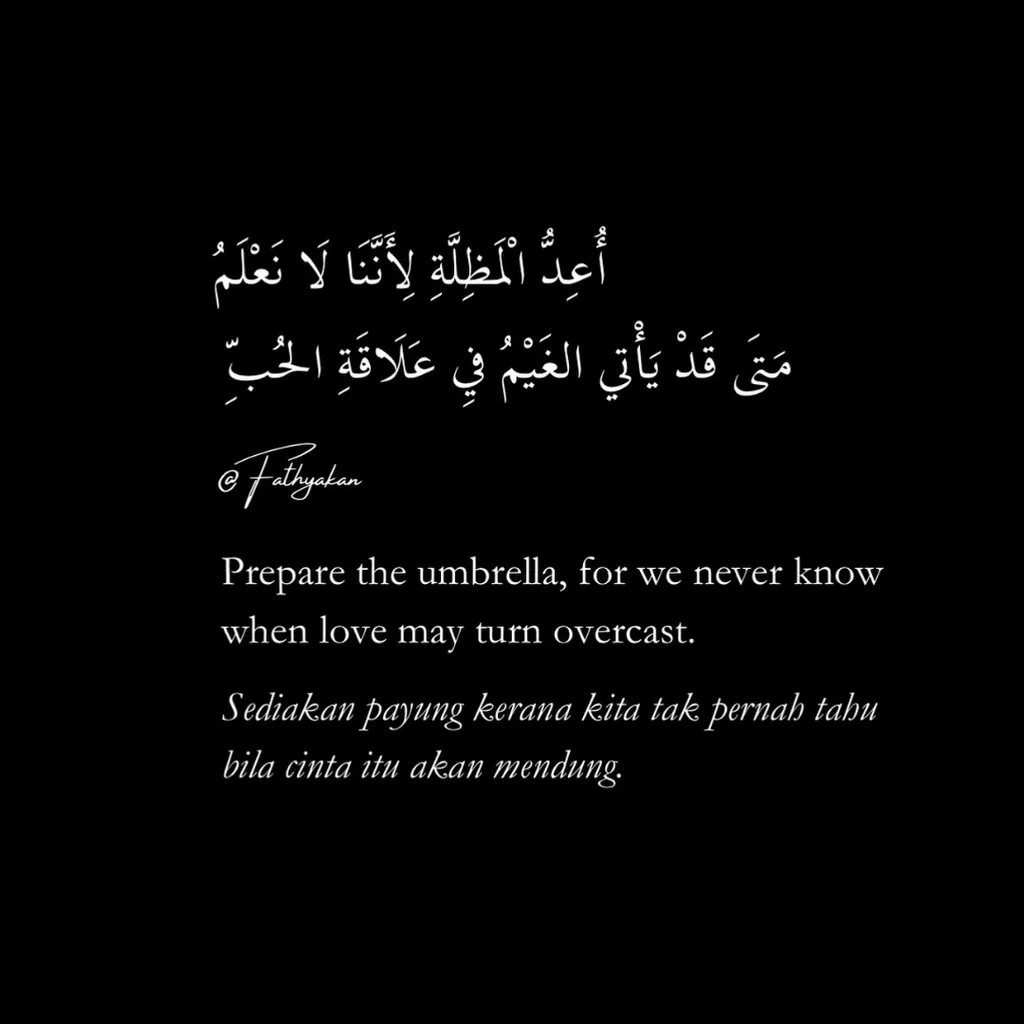 أُعِدُّ الْمَظِلَّةِ لِأَنَّنَا لَا نَعْلَمُ
مَتَى قَدْ يَأْتي الغَيْمُ فيِ عَلَاقَةِ الحُبِّ
@Fathyakan
Prepare the umbrella, for we never know
when love may turn overcast.
Sediakan payung kerana kita tak pernah tahu
bila cinta itu akan mendung.